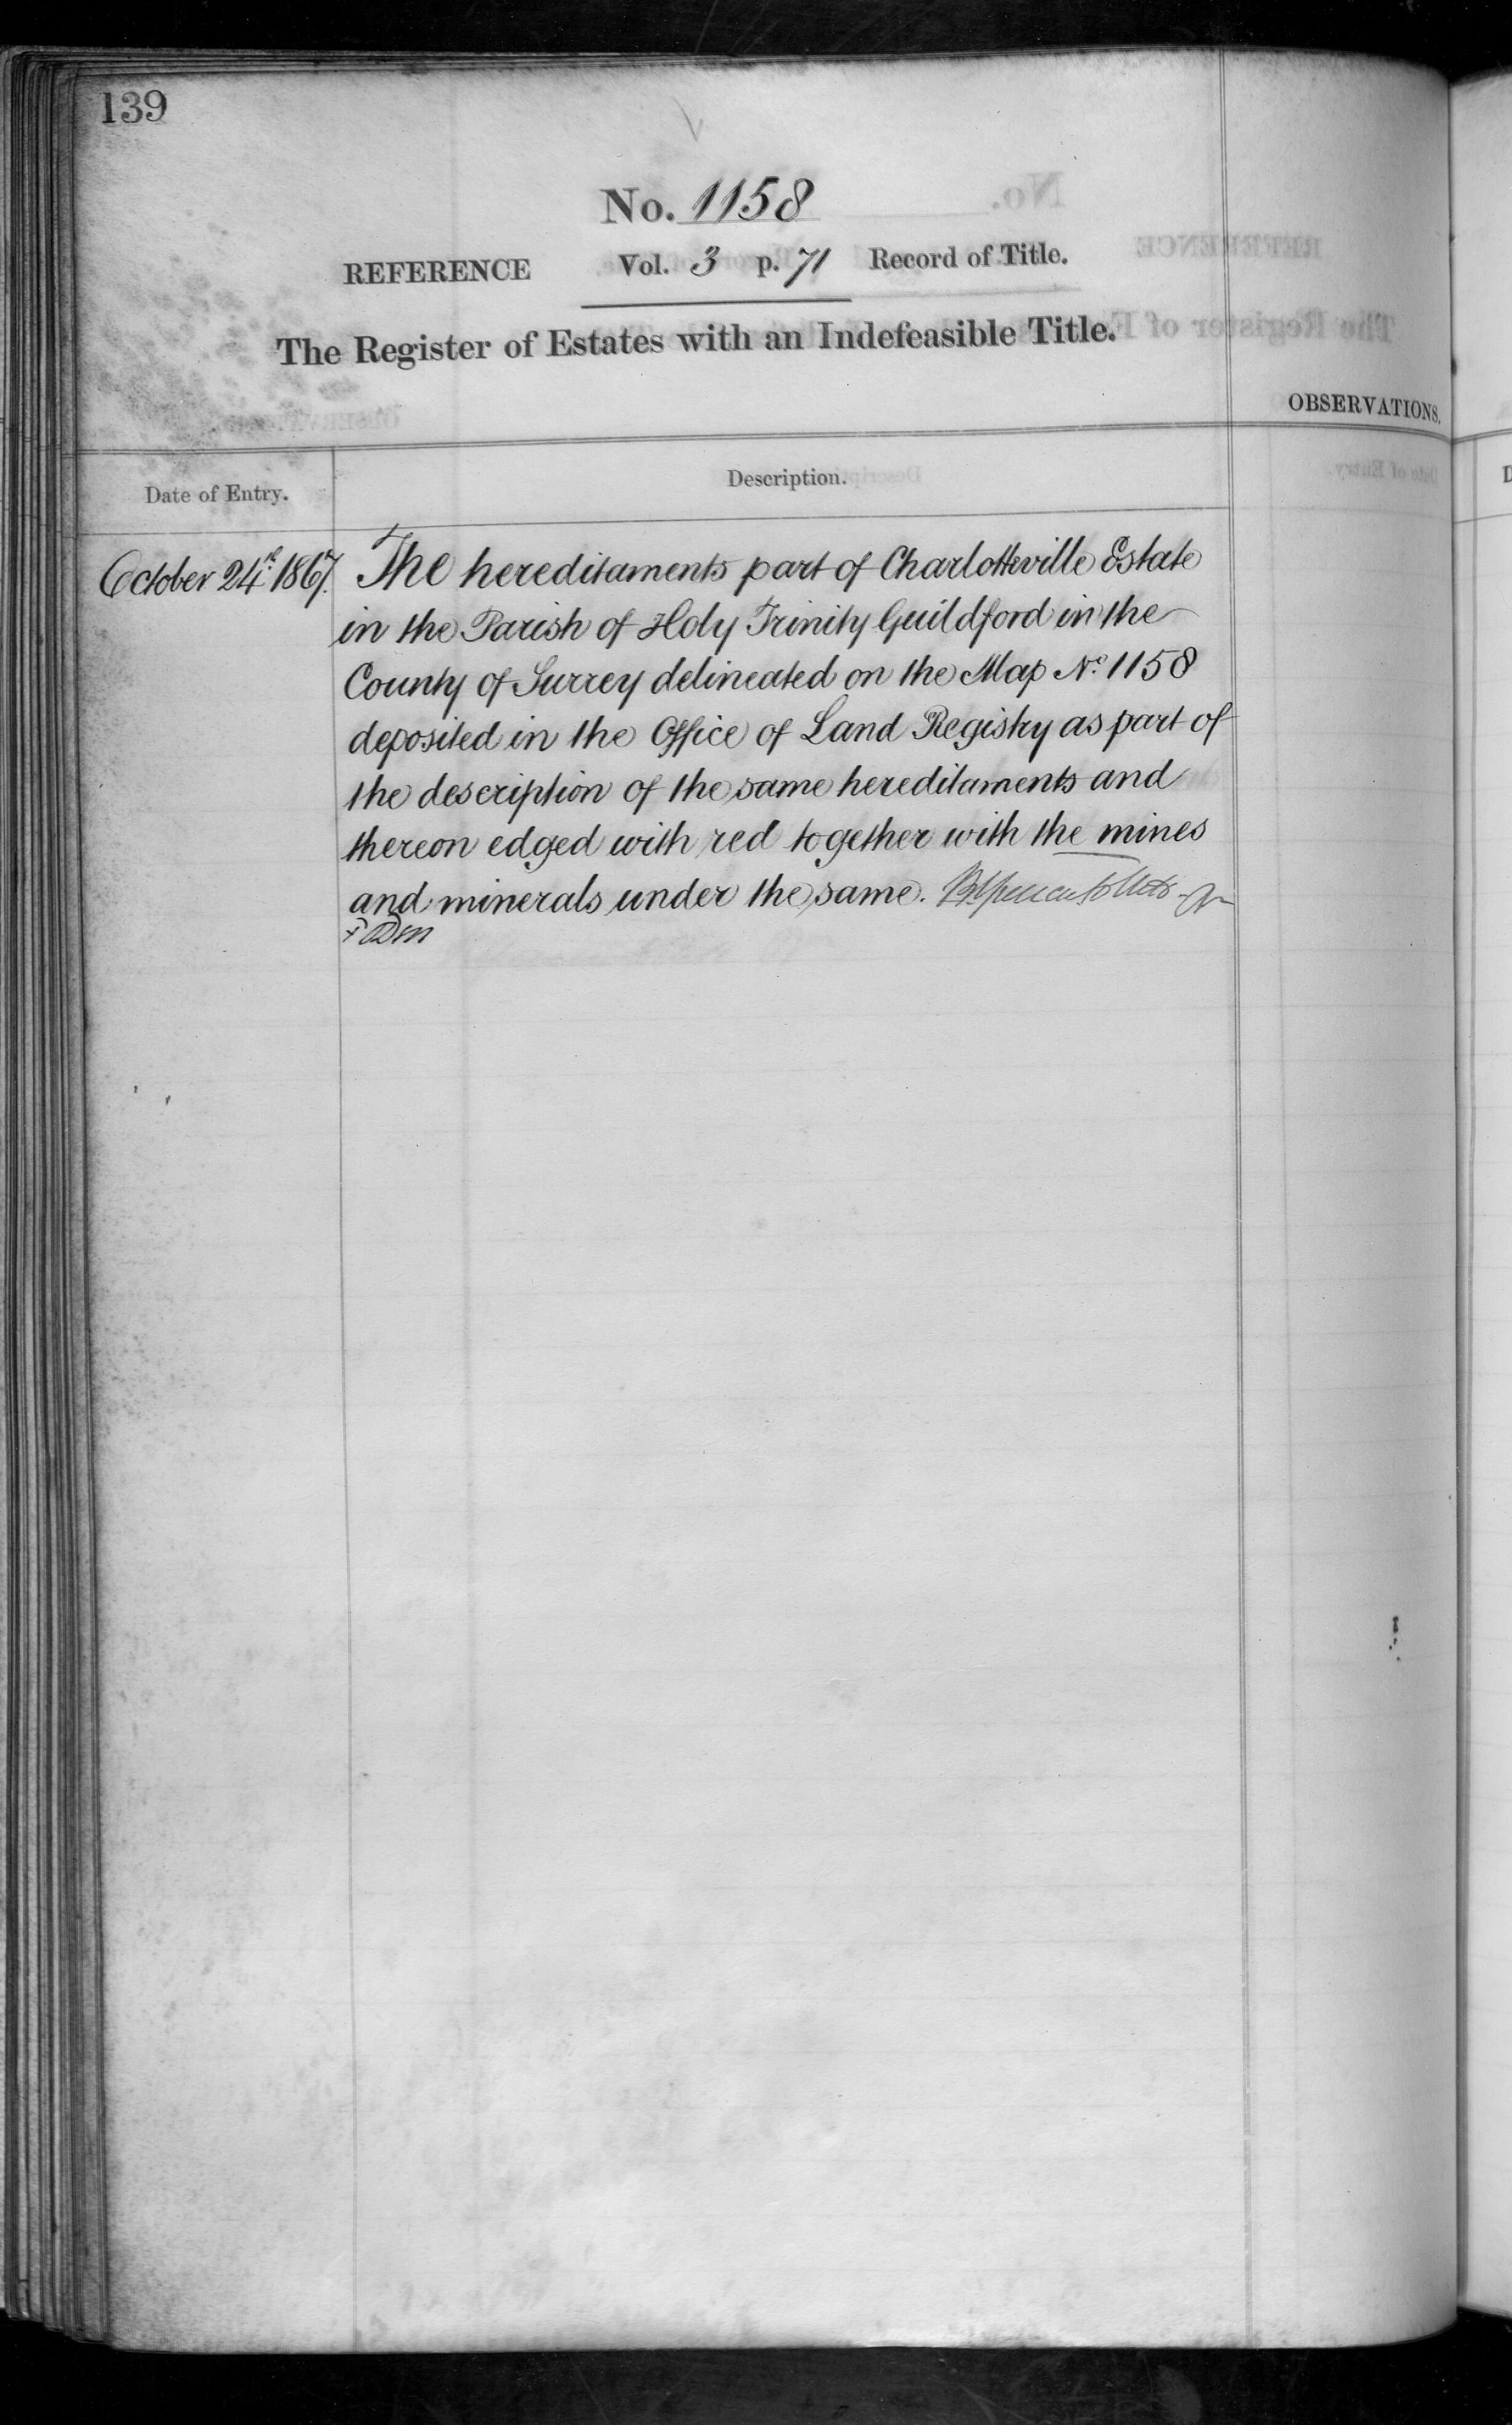 139
No. 1158
REFERENCE Vol. 3 p. 71 Record of Title.
The Register of Estates with an Indefeasible Title.
OBSERVATIONS.
Date of Entry.
Description.
October 24th 1867.
The hereditaments part of Charlotteville Estate
in the Parish of Holy Trinity Guildford in the
County of Surrey delineated on the Map No. 1158
deposited in the Office of Land Registry as part of
the description of the same hereditaments and
thereon edged with red together with the mines
and minerals under the same.